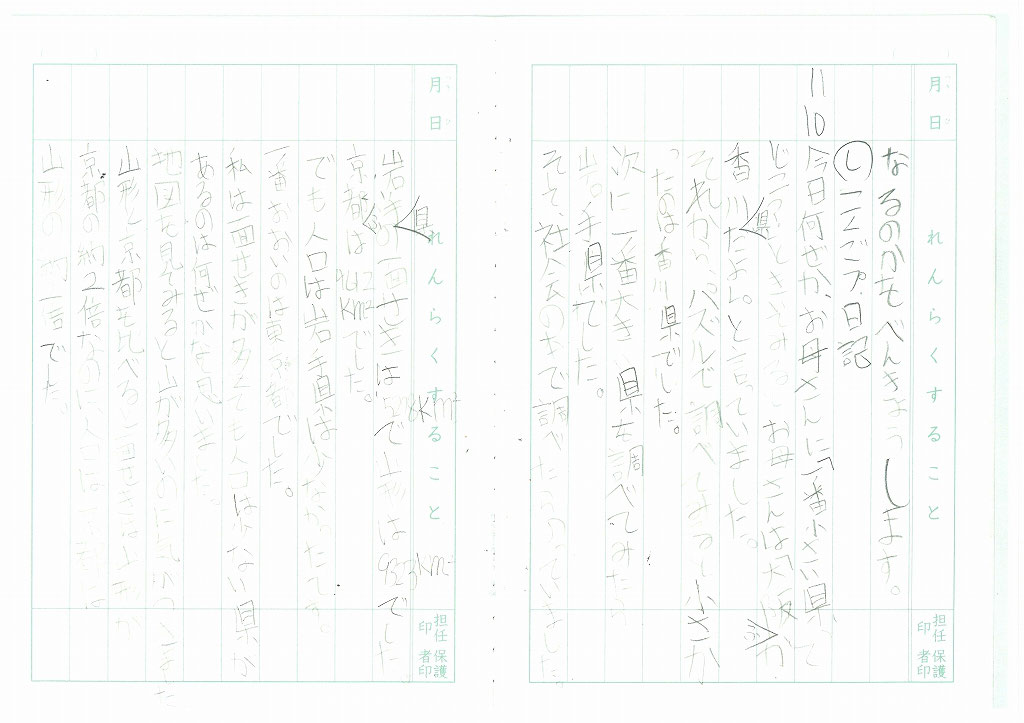 月日
れんらくすること
担任印
保護者印
なるのかをべんきょうします。
11
10
し 一くごプ。日記
今日何ぜか、お母さんに「一番小さい県って
ときいてみると お母さんは「大阪か
府
香川だよ。」と言っていました。
県
それから、パズルで調べてみると小さか
ったのは香川県でした。
次に一番大きい県を調べてみたら
岩手県でした。
そして、社会の本で調べたらのっていました。
月日
れんらくすること
担任印
保護者印
岩手の面せきは で山形は 93 でした。
県
km²
km²
京都は 4612km²でした。
でも人口は岩手県は少なかったです。
一番おおいのは東京都でした。
私は面せきが多くても人口は少ない県が
あるのは何ぜかなと思いました。
地図を見てみると山が多いのに気がつきました
山形と京都を比べると面せきは山形が
京都の約2倍なのに人口は
山形の 約 倍でした。